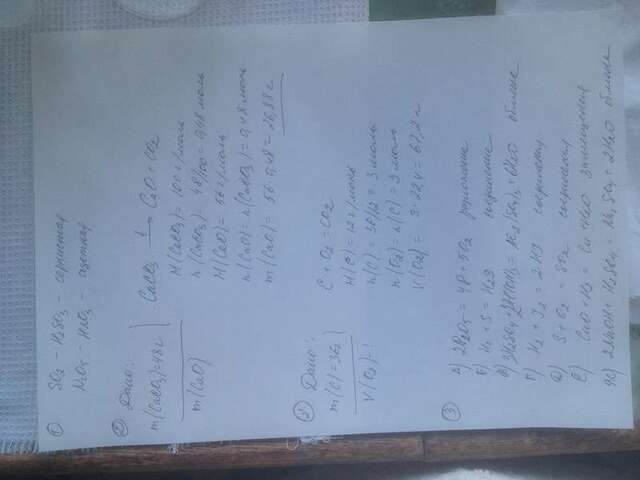 ① SO2 - H2SO3 - сернистая
N2O5 - HNO3 - азотная
② Дано:
m(CaCO3)=48г
m(CaO)
CaCO3 t→ CaO + CO2
M(CaCO3) = 100 г/моль
n(CaCO3) = 48/100 = 0,48 моль
M(CaO) = 56 г/моль
n(CaO) = n(CaCO3) = 0,48 моль
m(CaO) = 56·0,48 = 26,88 г
Дано:
m(C)=36г
V(O2)-?
C + O2 = CO2
M(C) = 12 г/моль
n(C) = 36/12 = 3 моль
n(O2) = n(C) = 3 моль
V(O2) = 3·22,4 = 67,2 л
③
А) 2P2O5 = 4P + 5O2 разложение
Б) H2 + S = H2S соединение
В) 3H2SO4 + 2Al(OH)3 = Al2(SO4)3 + 6H2O обмена
Г) H2 + I2 = 2HI соединения
Д) S + O2 = SO2 соединения
Е) CuO + H2 = Cu + H2O замещения
Ж) 2NaOH + H2SO4 = Na2SO4 + 2H2O обмена